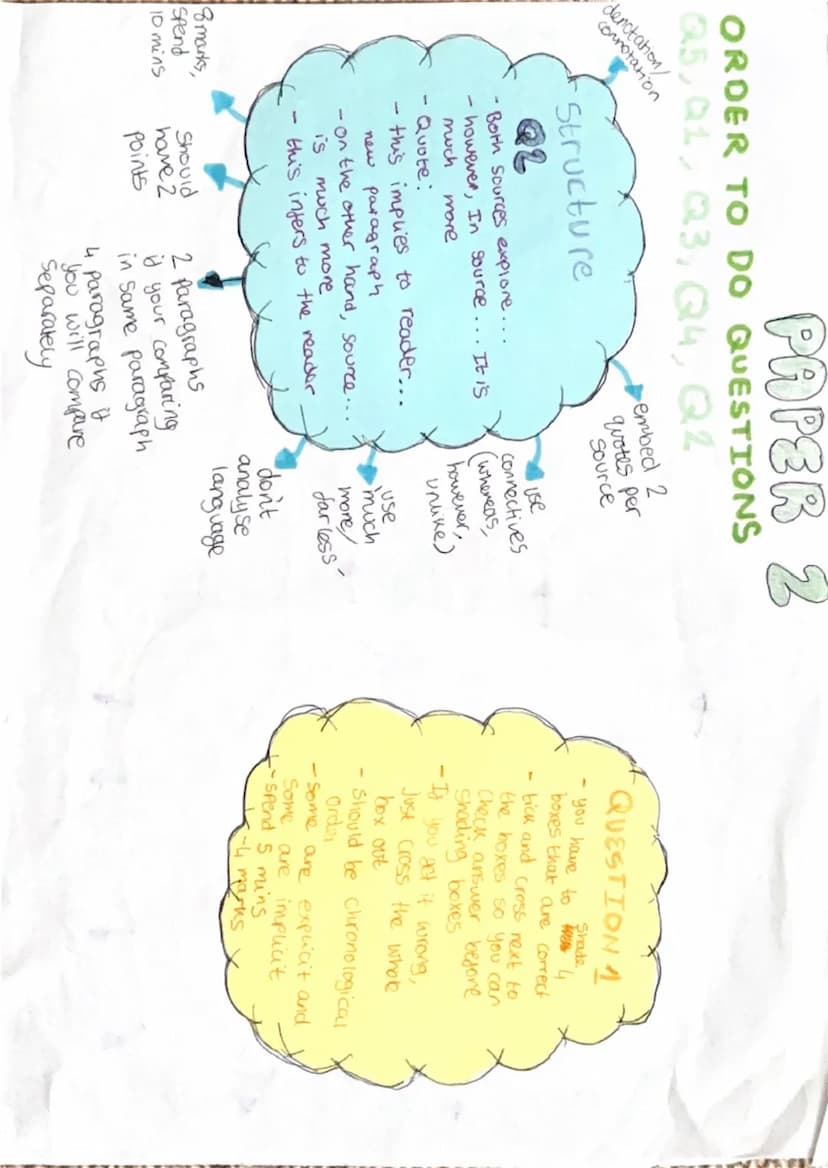 PAPER 2
ORDER TO DO QUESTIONS
Q5, Q1, Q3, Q4, Q2
denotation/
connotation
Structure
Q2
- Both sources explore....
- however, In source.... It is
much more
- Quote:
- this implies to reader...
new paragraph
- on the other hand, source...
is much more
- this infers to the reader
embed 2
quotes per
source
use
connectives
(whereas,
however,
unlike)
use
much
more/
far less
don't
analyse
language
8 marks,
spend
10 mins
should
have 2
points
2 paragraphs
if your comparing
in same paragraph
4 paragraphs if
you will compare
separately
QUESTION 1
- you have to shade 4
boxes that are correct
- tick and cross next to
the boxes so you can
check answer before
shading boxes
- If you get it wrong,
just cross the whole
box out
- should be chronological
order
- some are explicit and
some are implicit
- spend 5 mins
- 4 marks